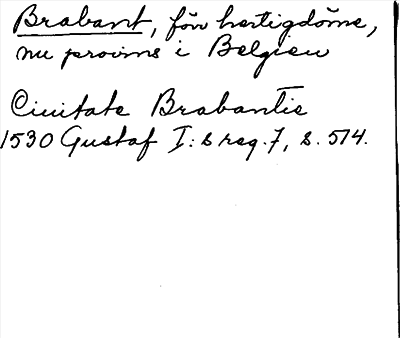 Brabant, förr hertigdöme,
nu provins i Belgien
Civitate Brabantie
1530 Gustaf I:s reg. 7, s. 514.